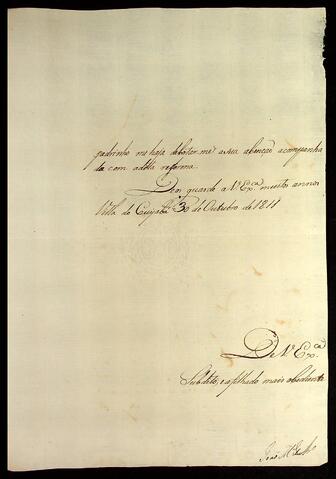 padrinho me haja debotar me asua abenção acompanha
da com adita reforma.
Deos guarde a V. Ex.ca muitos annos
Villa do Cuyabá 30 de Outubro de 1811
De V. Ex.ca
Subdito, e afilhado mais obediente